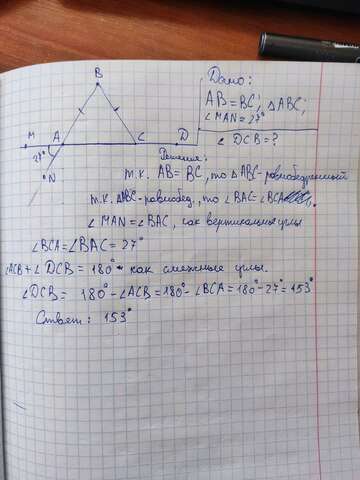 B
Дано:
AB = BC; △ABC;
∠MAN = 27°
∠DCB = ?
M A C D
27°
N
Решение:
т.к. AB = BC, то △ABC - равнобедренный
т.к. △ABC - равнобед, то ∠BAC = ∠BCA
∠MAN = ∠BAC, как вертикальные углы
∠BCA = ∠BAC = 27°
∠ACB + ∠DCB = 180° - как смежные углы.
∠DCB = 180° - ∠ACB = 180° - ∠BCA = 180° - 27° = 153°
Ответ: 153°